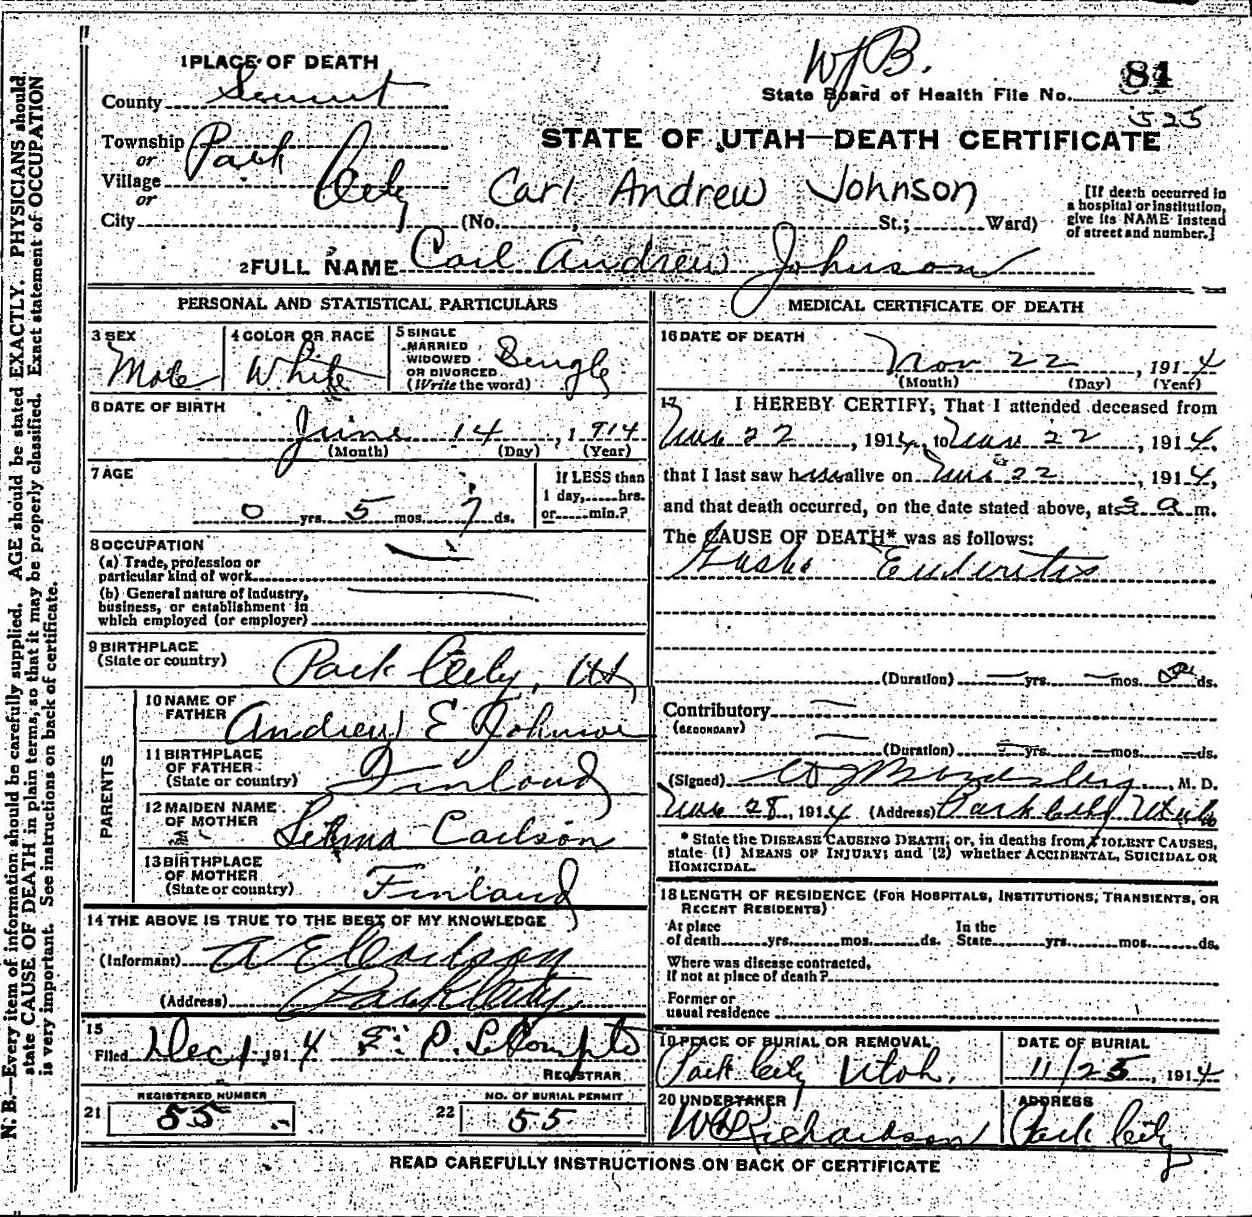 WJB.
1 PLACE OF DEATH
84
County Summit
State Board of Health File No.
525
Township Park City
or
Village
or
STATE OF UTAH—DEATH CERTIFICATE
Carl Andrew Johnson
City (No. St.; Ward)
[If death occurred in
a hospital or institution,
give its NAME instead
of street and number.]
2 FULL NAME Carl Andrew Johnson
PERSONAL AND STATISTICAL PARTICULARS
3 SEX
Male
4 COLOR OR RACE
White
5 SINGLE
MARRIED
WIDOWED
OR DIVORCED
(Write the word)
Single
6 DATE OF BIRTH
June 14, 1914
(Month) (Day) (Year)
7 AGE
0 yrs. 5 mos. 7 ds.
If LESS than
1 day, hrs.
or min.?
8 OCCUPATION
(a) Trade, profession or
particular kind of work
(b) General nature of Industry,
business, or establishment in
which employed (or employer)
9 BIRTHPLACE
(State or country)
Park City, Ut
PARENTS
10 NAME OF
FATHER
Andrew E Johnson
11 BIRTHPLACE
OF FATHER
(State or country)
Finland
12 MAIDEN NAME
OF MOTHER
Selma Carlson
13 BIRTHPLACE
OF MOTHER
(State or country)
Finland
14 THE ABOVE IS TRUE TO THE BEST OF MY KNOWLEDGE
(Informant) A E
(Address) Park City
15
Filed Dec 1, 1914 E. P. LeCompte
REGISTRAR
21 REGISTERED NUMBER
55
22 NO. OF BURIAL PERMIT
55
MEDICAL CERTIFICATE OF DEATH
16 DATE OF DEATH
Nov 22, 1914
(Month) (Day) (Year)
17 I HEREBY CERTIFY, That I attended deceased from
Nov 22, 1914, to Nov 22, 1914.
that I last saw h alive on Nov 22, 1914,
and that death occurred, on the date stated above, at a m.
The CAUSE OF DEATH* was as follows:
Gastro Enteritis
(Duration) — yrs. — mos. ds.
Contributory
(SECONDARY)
(Duration) — yrs. — mos. — ds.
(Signed) M. D.
Nov 28, 1914 (Address) Park City Utah
* State the DISEASE CAUSING DEATH; or, in deaths from VIOLENT CAUSES,
state (1) MEANS OF INJURY; and (2) whether ACCIDENTAL, SUICIDAL OR
HOMICIDAL.
18 LENGTH OF RESIDENCE (FOR HOSPITALS, INSTITUTIONS, TRANSIENTS, OR
RECENT RESIDENTS)
At place
of death yrs. mos. ds.
In the
State yrs. mos. ds.
Where was disease contracted,
if not at place of death?
Former or
usual residence
19 PLACE OF BURIAL OR REMOVAL
Park City Utah.
DATE OF BURIAL
11/25, 1914
20 UNDERTAKER
Richardson
ADDRESS
Park City
READ CAREFULLY INSTRUCTIONS ON BACK OF CERTIFICATE
N. B.—Every item of information should be carefully supplied. AGE should be stated EXACTLY. PHYSICIANS should
state CAUSE OF DEATH in plain terms, so that it may be properly classified. Exact statement of OCCUPATION
is very important. See instructions on back of certificate.